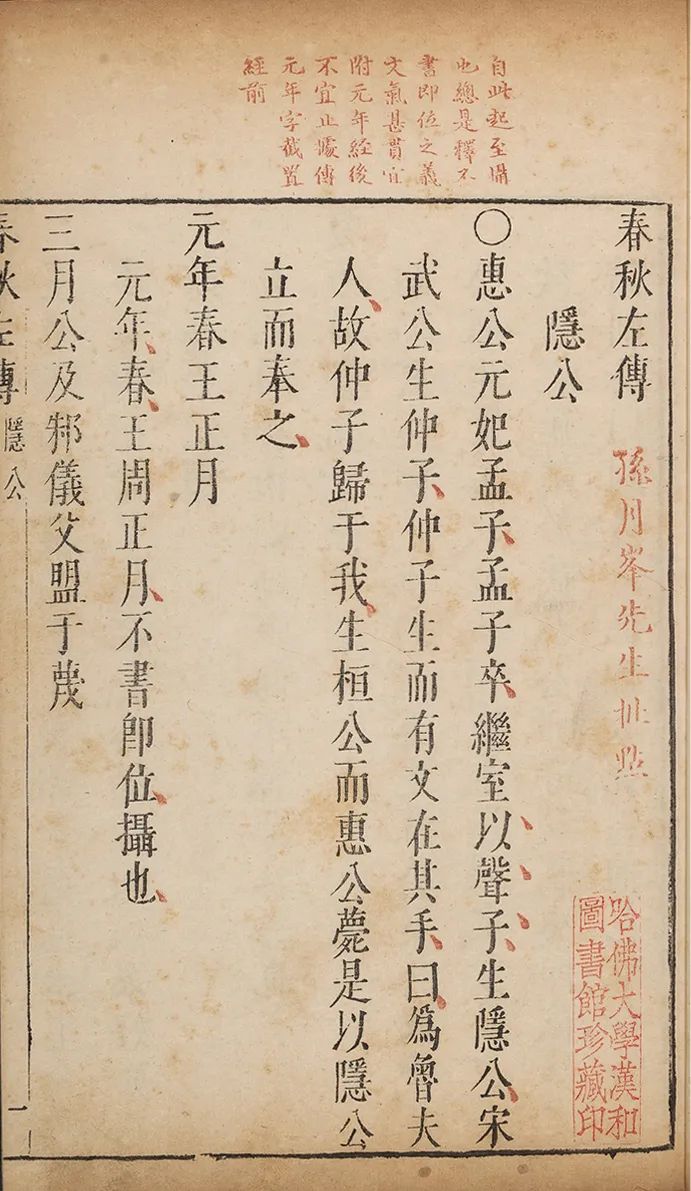 自此起至攝
也總是釋不
書即位之義
文氣甚貫宜
附元年經後
不宜止據傳
元年字截置
經前
春秋左傳
孫月峯先生批點
哈佛大學漢和
圖書館珍藏印
隱公
〇惠公元妃孟子、孟子卒、繼室以聲子、生隱公、宋
武公生仲子、仲子生而有文在其手、曰、爲魯夫
人、故仲子歸于我、生桓公而惠公薨是以隱公
立而奉之、
元年春王正月
元年、春、王周正月、不書卽位、攝也、
三月公及邾儀父盟于蔑
春秋左傳 隱公 一